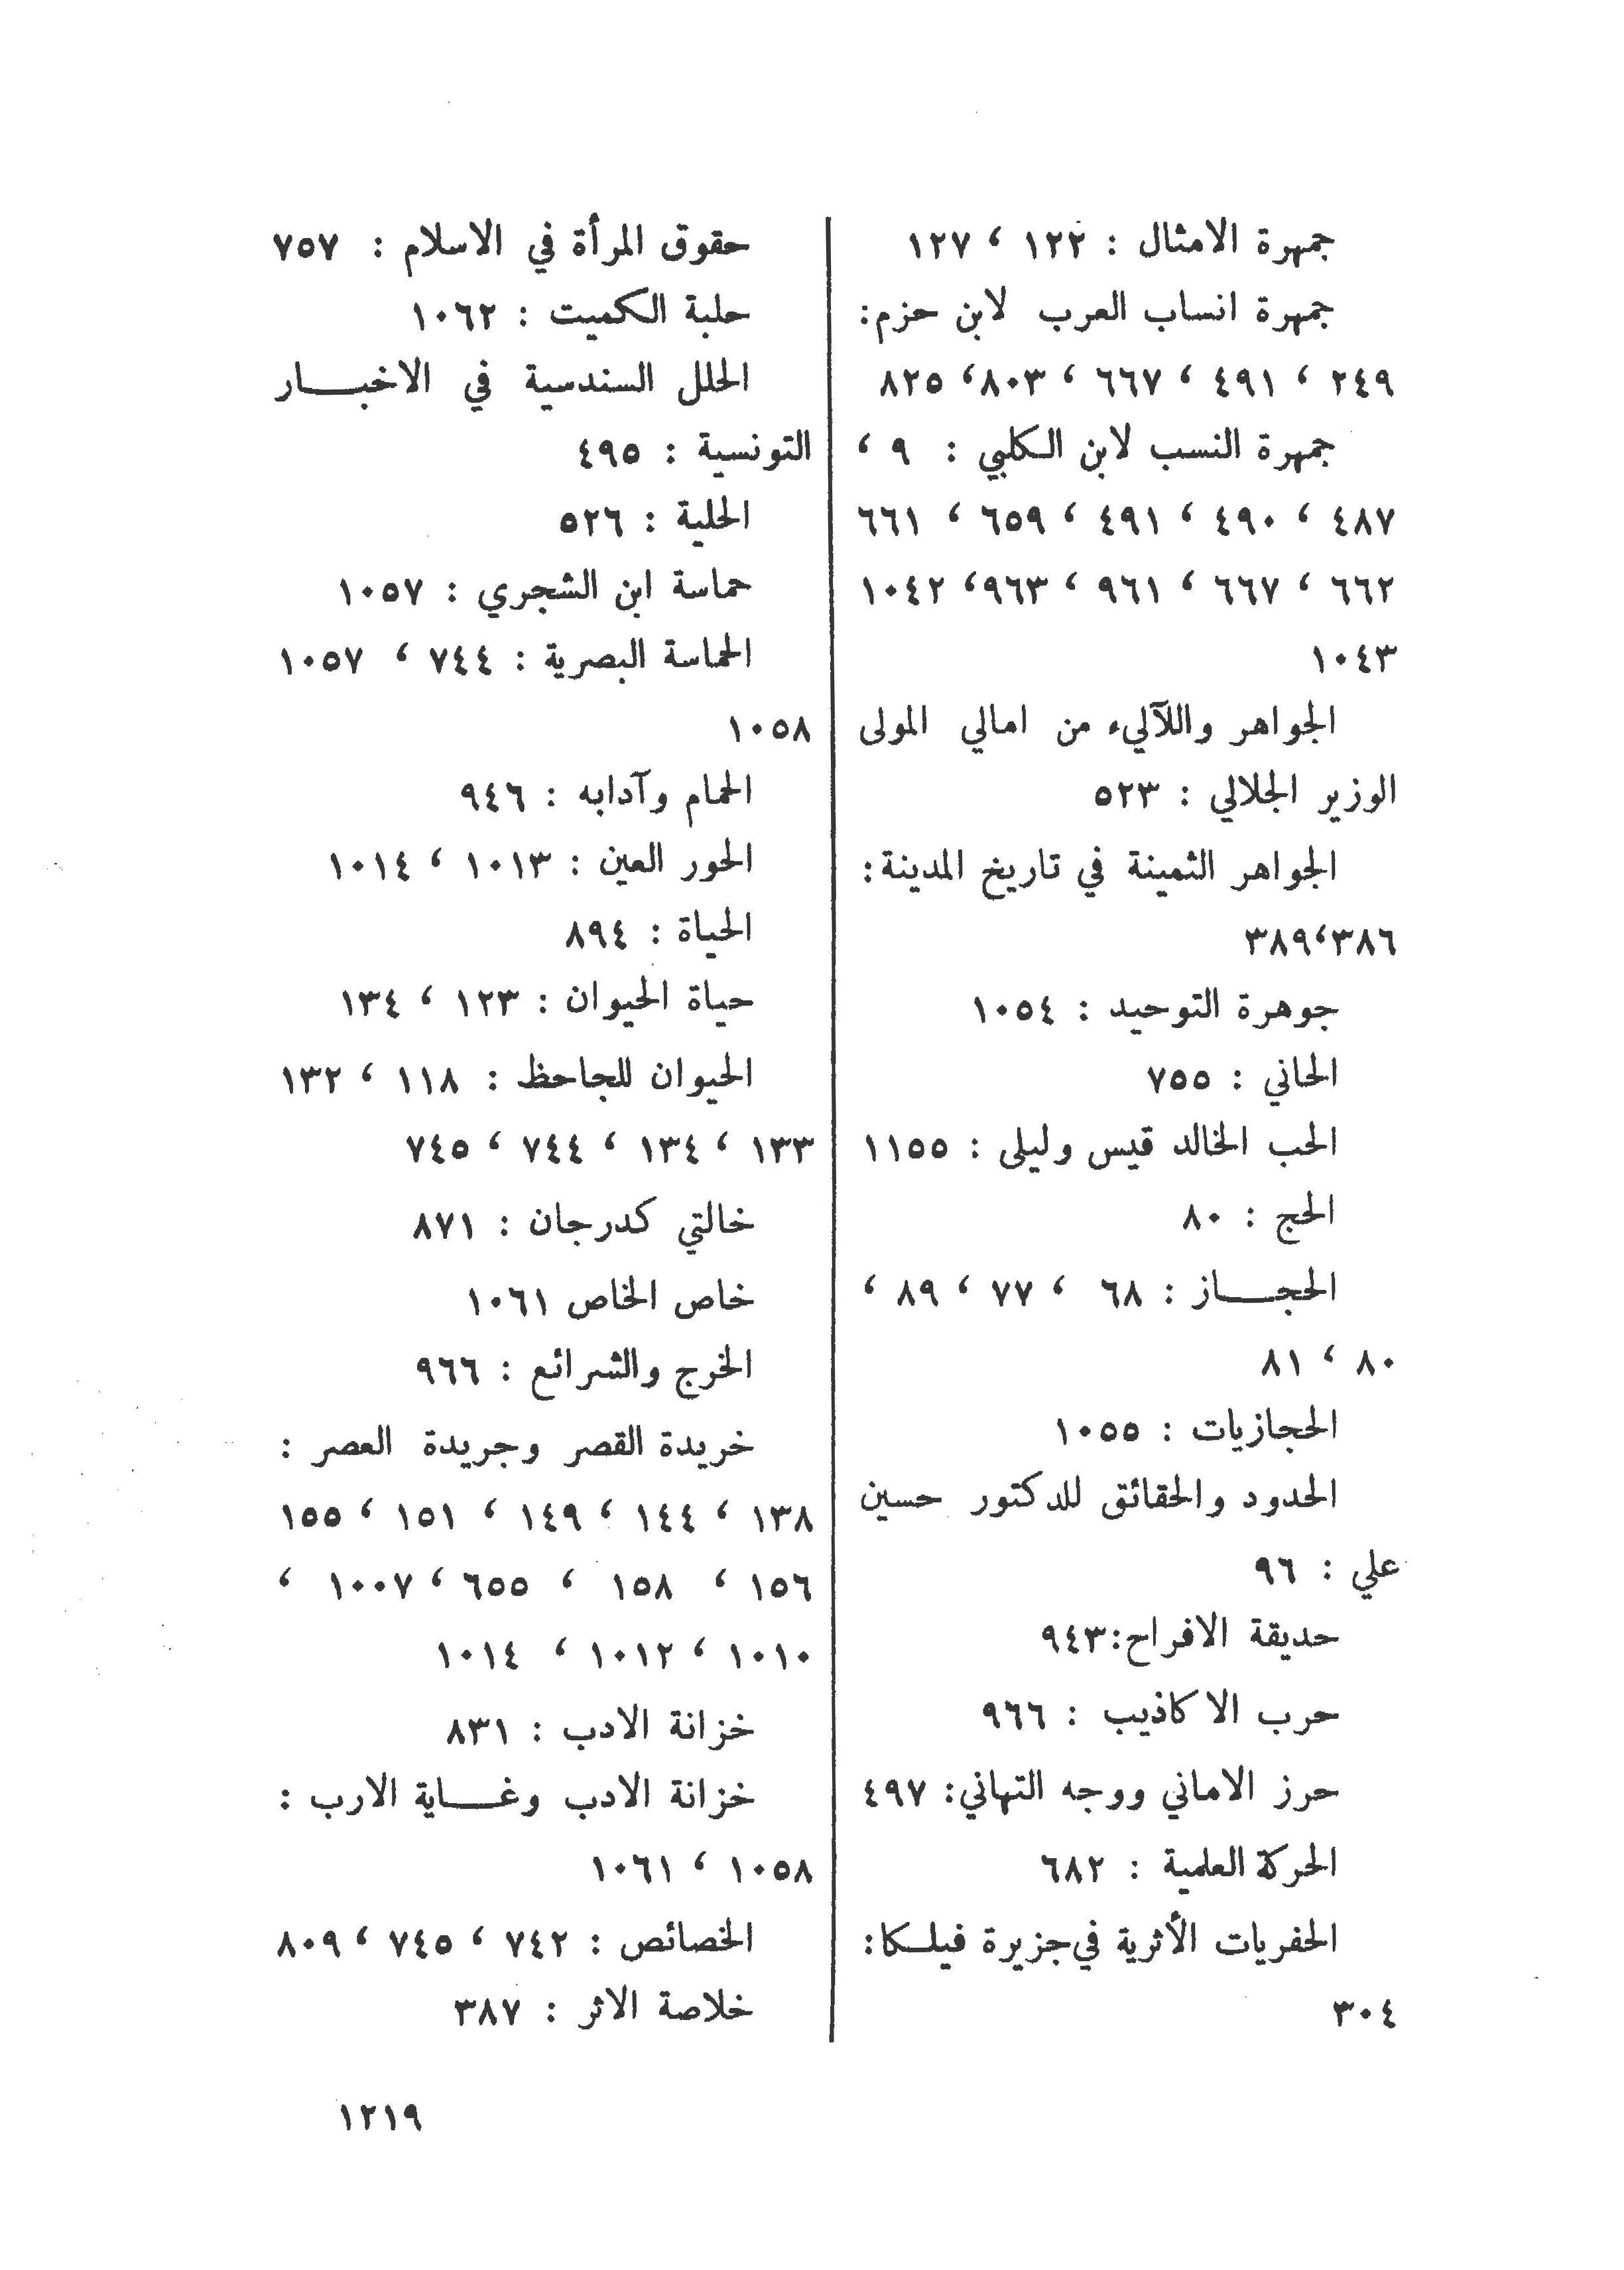 جمهرة الامثال : ١٢٢ ، ١٢٧
جمهرة انساب العرب لابن حزم:
٢٤٩ ، ٤٩١ ، ٦٦٧ ، ٨٠٣، ٨٢٥
جمهرة النسب لابن الكلبي : ٩ ،
٤٨٧ ، ٤٩٠ ، ٤٩١ ، ٦٥٩ ، ٦٦١
٦٦٢ ، ٦٦٧ ، ٩٦١ ، ٩٦٣، ١٠٤٢
١٠٤٣
الجواهر واللآليء من امالي المولى
الوزير الجلالي : ٥٢٣
الجواهر الثمينة في تاريخ المدينة:
٣٨٦،٣٨٩
جوهرة التوحيد : ١٠٥٤
الحاني : ٧٥٥
الحب الخالد قيس وليلى : ١١٥٥
الحج : ٨٠
الحجـــاز : ٦٨ ، ٧٧ ، ٨٩ ،
٨٠ ، ٨١
الحجازيات : ١٠٥٥
الحدود والحقائق للدكتور حسين
علي : ٩٦
حديقة الافراح:٩٤٣
حرب الاكاذيب : ٩٦٦
حرز الاماني ووجه التهاني: ٤٩٧
الحركة العلمية : ٦٨٢
الحفريات الأثرية في جزيرة فيلكا:
٣٠٤
حقوق المرأة في الاسلام : ٧٥٧
حلبة الكميت : ١٠٦٢
الحلل السندسية في الاخبـــار
التونسية : ٤٩٥
الحلية : ٥٢٦
حماسة ابن الشجري : ١٠٥٧
الحماسة البصرية : ٧٤٤ ، ١٠٥٧
١٠٥٨
الحمام وآدابه : ٩٤٦
الحور العين : ١٠١٣ ، ١٠١٤
الحياة : ٨٩٤
حياة الحيوان : ١٢٣ ، ١٣٤
الحيوان للجاحظ : ١١٨ ، ١٣٢
١٣٣ ، ١٣٤ ، ٧٤٤ ، ٧٤٥
خالتي كدرجان : ٨٧١
خاص الخاص ١٠٦١
الخرج والشرائع : ٩٦٦
خريدة القصر وجريدة العصر :
١٣٨ ، ١٤٤ ، ١٤٩ ، ١٥١ ، ١٥٥
١٥٦ ، ١٥٨ ، ٦٥٥ ، ١٠٠٧ ،
١٠١٠ ، ١٠١٢ ، ١٠١٤
خزانة الادب : ٨٣١
خزانة الادب وغـــاية الارب :
١٠٥٨ ، ١٠٦١
الخصائص : ٧٤٢ ، ٧٤٥ ، ٨٠٩
خلاصة الاثر : ٣٨٧
١٢١٩